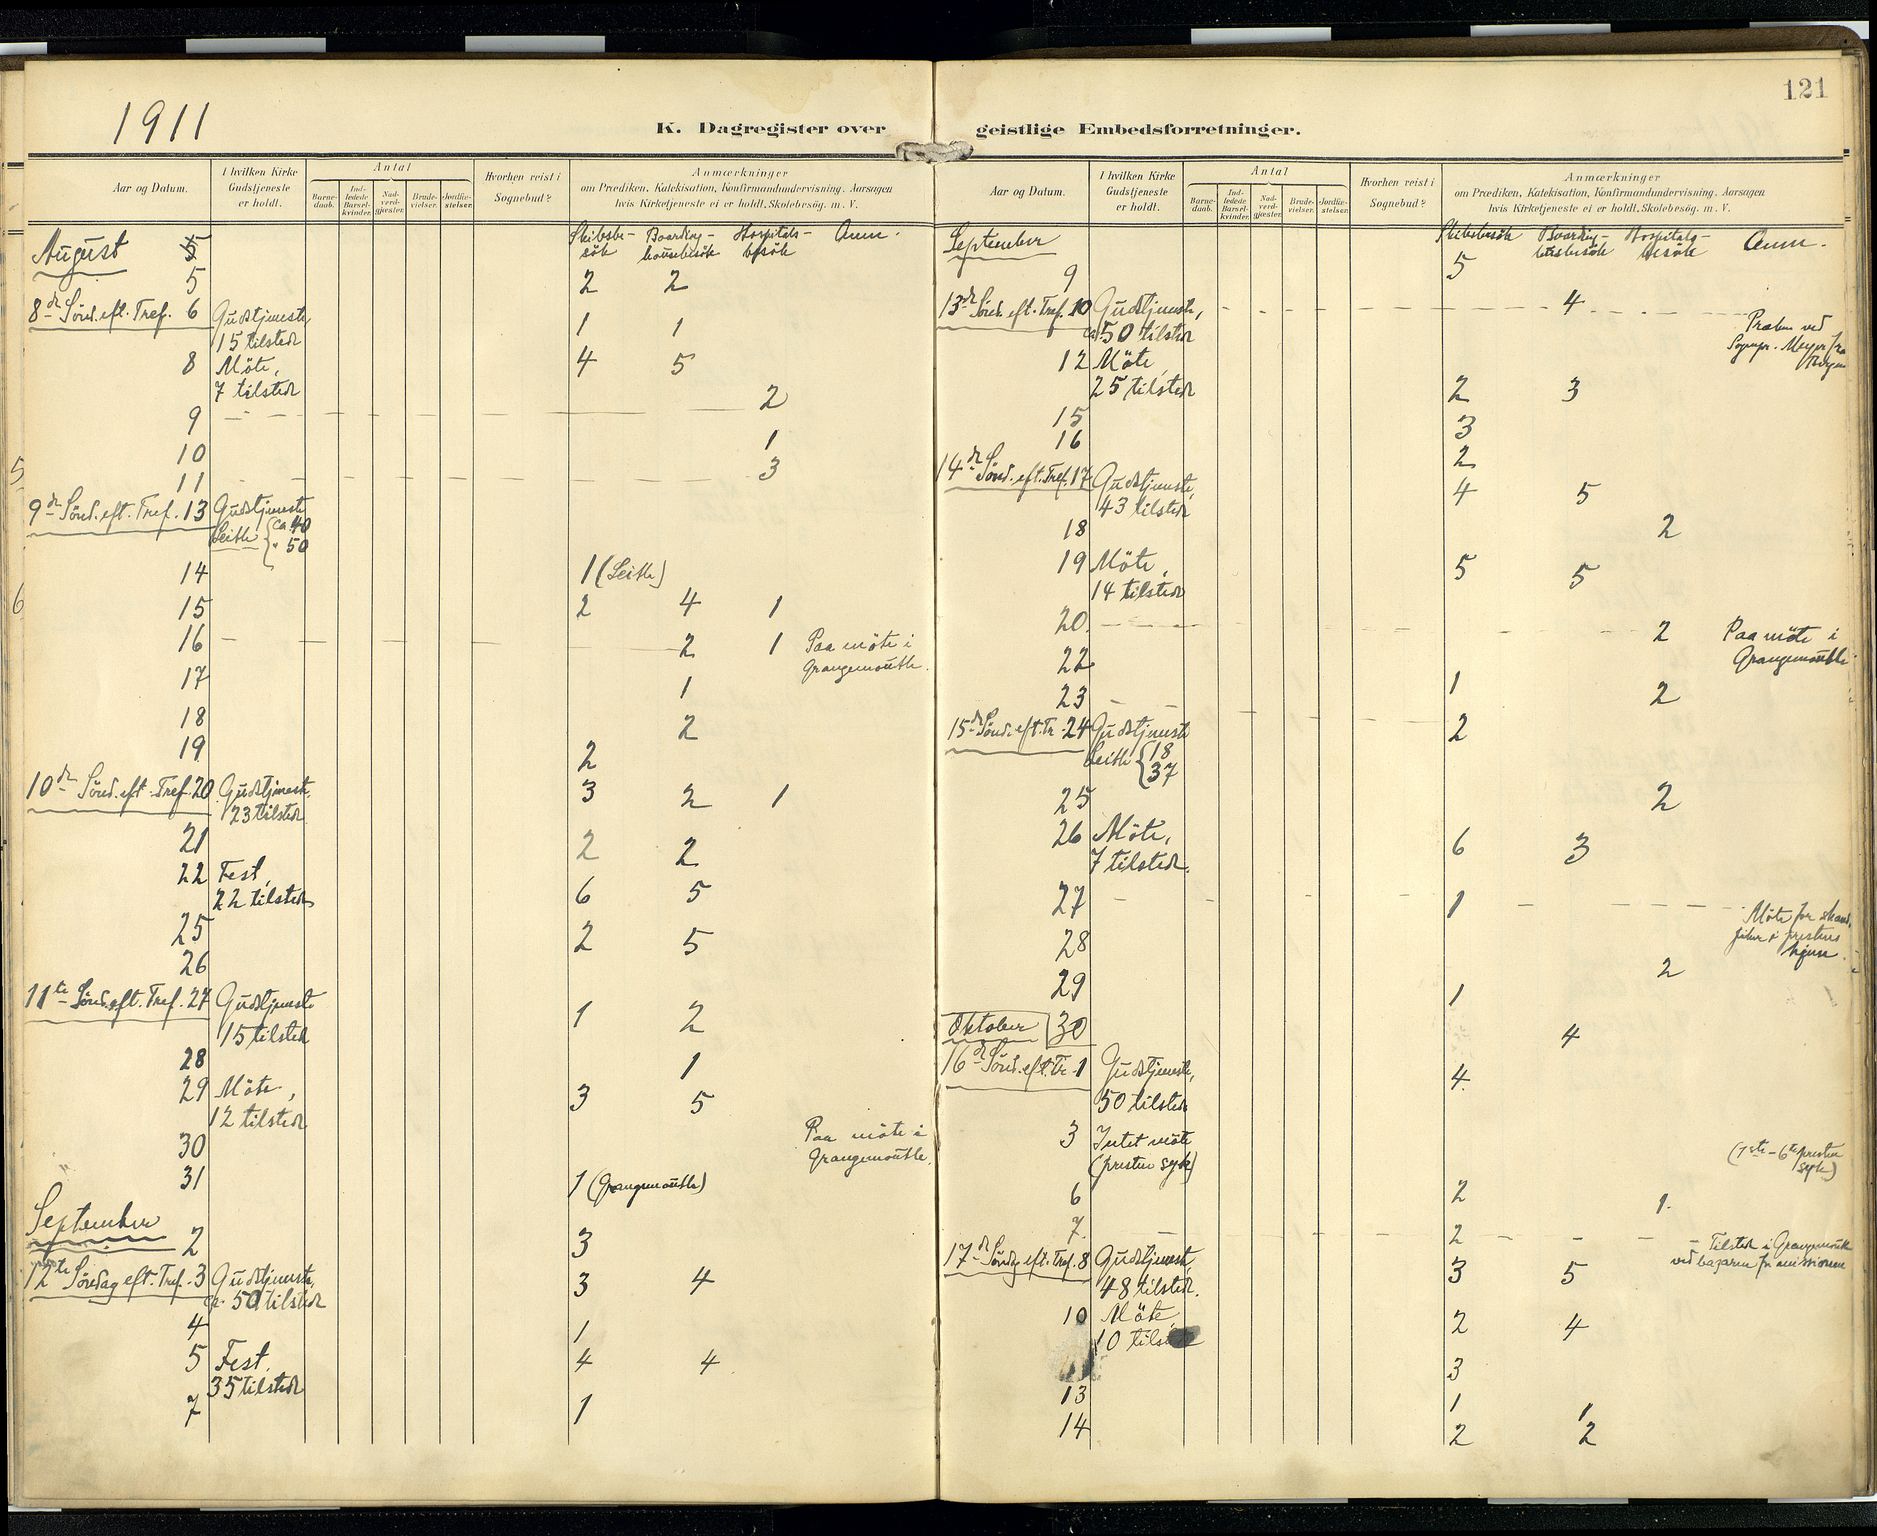 121
1911
K. Dagregister over geistlige Embedsforretninger.
Aar og Datum.
I hvilken Kirke Gudstjeneste er holdt.
Antal
Barnedaab.
Indledede Barselkvinder.
Nadverdgjester.
Brudevielser.
Jordfæstelser.
Hvorhen reist i Sognebud?
Anmærkninger
om Prædiken, Katekisation, Konfirmandundervisning. Aarsagen
hvis Kirketjeneste ei er holdt. Skolebesøg. m. V.
August 5 Skibsbesök Boardinghousebesök Hospitalsbesök Anm.
5 2 2
8de Sönd. eft. Tref. 6 Gudstjeneste, 1 1
15 tilstede
8 Möte, 4 5
7 tilstede
9 2
10 1
11 3
9de Sönd. eft. Tref. 13 Gudstjeneste
Leith { ca 40
" 50
14 1 (Leith)
15 2 4 1
16 2 1 Paa möte i
Grangemouth.
17 1
18 2
19 2
10de Sönd. eft. Tref. 20 Gudstjeneste, 3 2 1
23 tilstede
21 2 2
22 Fest, 6 5
22 tilstede
25 2 5
26
11te Sönd. eft. Tref. 27 Gudstjeneste 1 2
15 tilstede
28 1
29 Möte, 3 5
12 tilstede
30 Paa möte i
Grangemouth.
31 1 (Grangemouth)
September
2 3
12te Söndag eft. Tref. 3 Gudstjeneste, 3 4
ca. 50 tilstede
4 1
5 Fest, 4 4
35 tilstede
7 1
Aar og Datum.
I hvilken Kirke Gudstjeneste er holdt.
Antal
Barnedaab.
Indledede Barselkvinder.
Nadverdgjester.
Brudevielser.
Jordfæstelser.
Hvorhen reist i Sognebud?
Anmærkninger
om Prædiken, Katekisation, Konfirmandundervisning. Aarsagen
hvis Kirketjeneste ei er holdt. Skolebesøg. m. V.
September Skibsbesök Boardinghusbesök Hospitalsbesök Anm.
9 5
13de Sönd. eft. Tref. 10 Gudstjeneste, 4
ca 50 tilstede Præken ved
Sognepr. Meyer fra
12 Möte,
25 tilstede 2 3
15 3
16 2
14de Sönd. eft. Tref. 17 Gudstjeneste, 4 5
43 tilstede
18 2
19 Möte, 5 5
14 tilstede
20. 2 Paa möte i
Grangemouth
22 1 2
23 2
15de Sönd. eft. Tr. 24 Gudstjeneste
Leith { 18
37
25 2
26 Möte, 6 3
7 tilstede.
27 1 Möte for skand.
piker i prestens
hjem.
28 2
29 1
Oktober 30 4
16de Sönd. eft. Tr. 1 Gudstjeneste, 4.
50 tilstede
3 Intet möte
(presten syk) (1ste - 6te presten
syk)
6 2 1.
7. 2 Tilstede i Grangemouth
ved bazaren for missionen
17de Söndag eft. Tref. 8 Gudstjeneste, 3 5
48 tilstede.
10 Möte, 2 4
10 tilstede
3
13 1 1
14 2 2